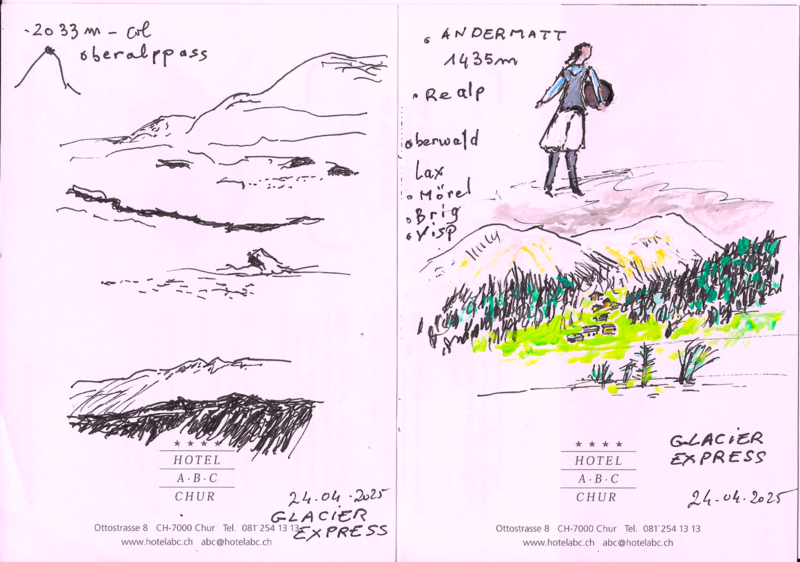 -2033m - col
oberalppass
★★★★
HOTEL
A·B·C
CHUR
24-04-2025
GLACIER
EXPRESS
Ottostrasse 8 CH-7000 Chur Tel. 081 254 13 13
www.hotelabc.ch abc@hotelabc.ch
• ANDERMATT
1435m
• Realp
oberwald
Lax
• Mörel
• Brig
• Visp
★★★★
HOTEL
A·B·C
CHUR
GLACIER
EXPRESS
24-04-2025
Ottostrasse 8 CH-7000 Chur Tel. 081 254 13 13
www.hotelabc.ch abc@hotelabc.ch